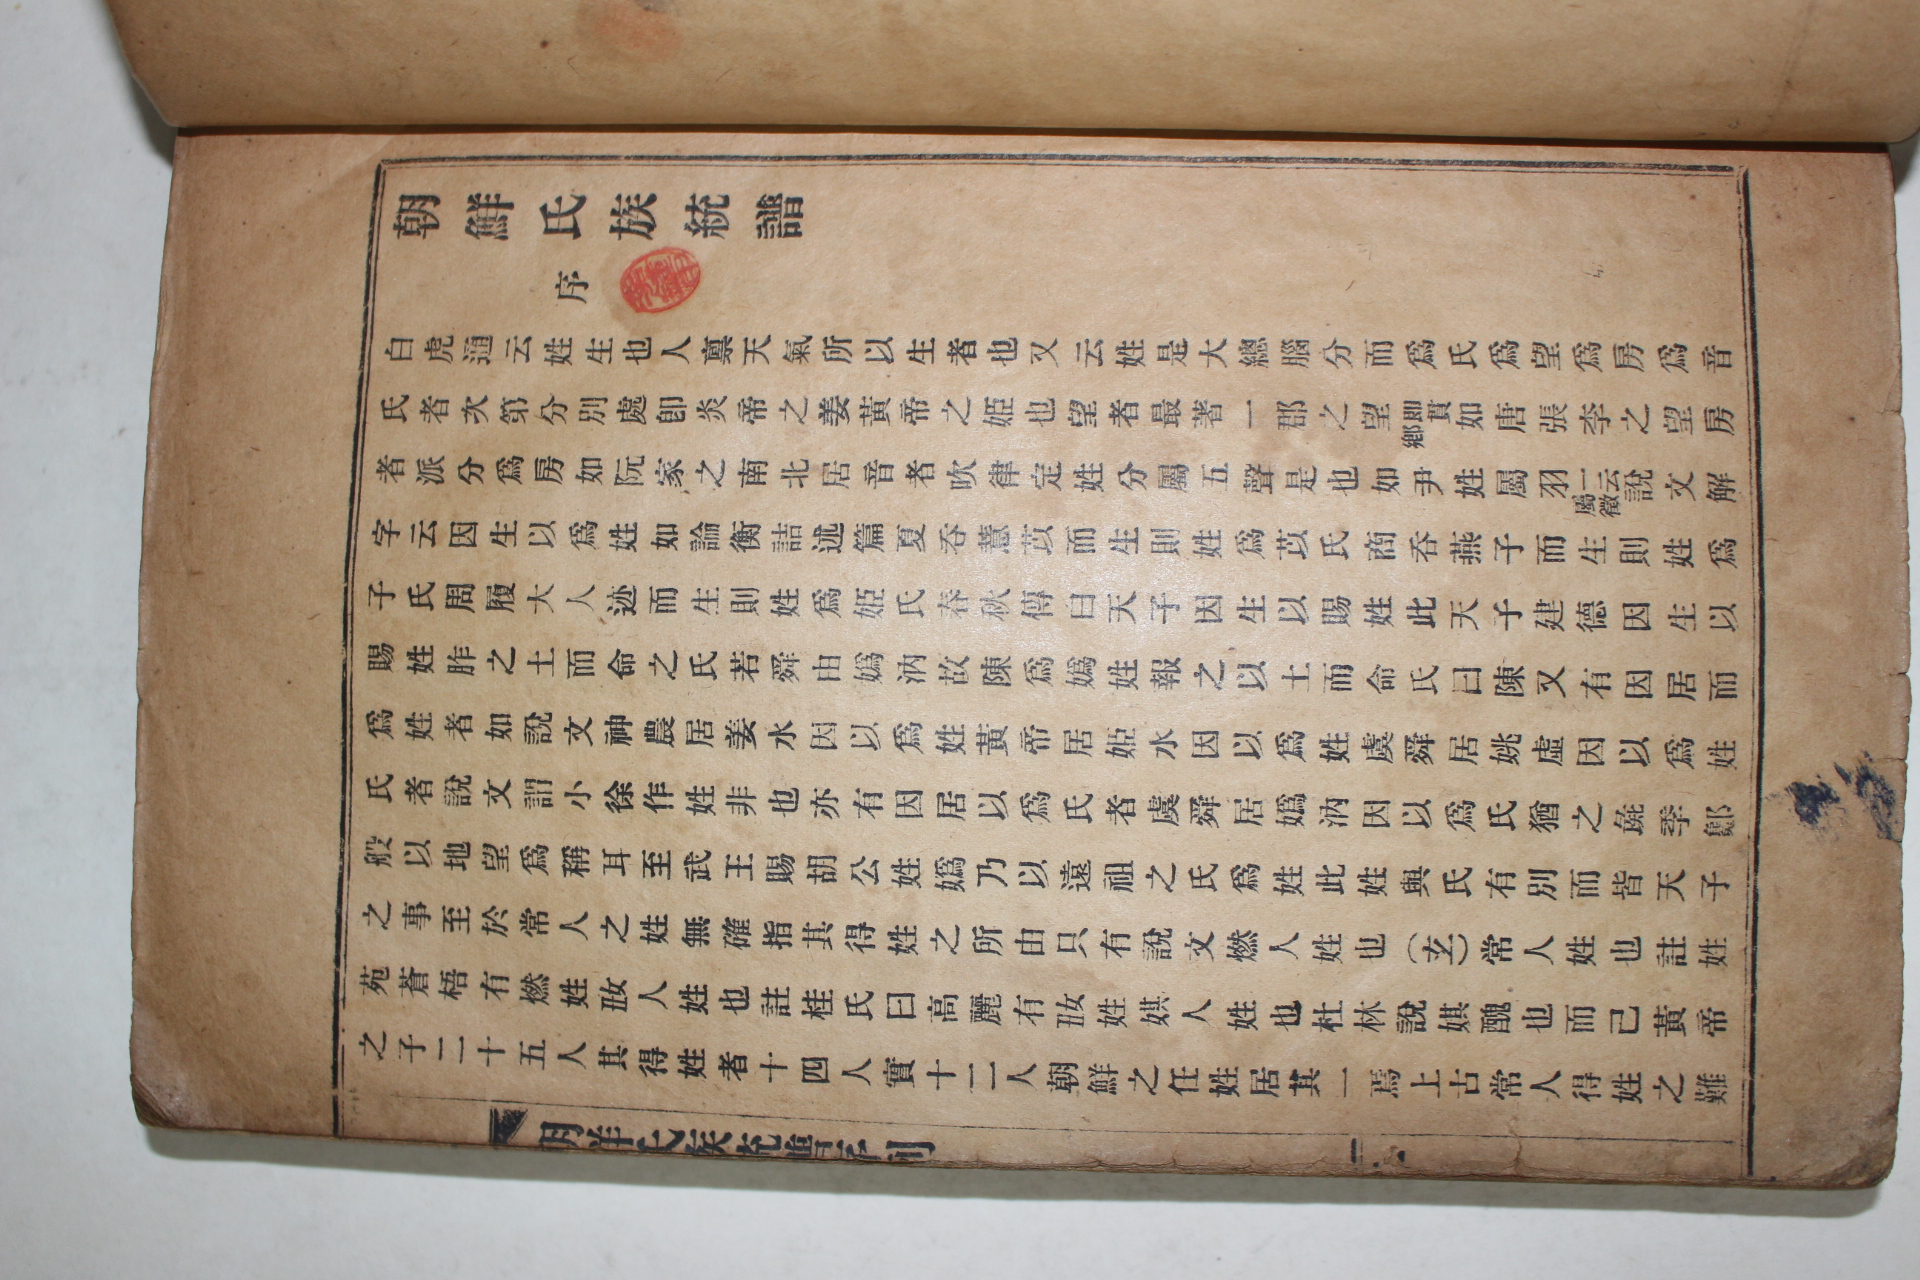 朝鮮氏族統譜
序
白虎通云姓生也人禀天氣所以生者也又云姓是大總腦分而爲氏爲望爲房爲音
氏者次第分別處卽炎帝之姜黃帝之姬也望者最著一郡之望卽貫鄕如唐張李之望房
者派分爲房如阮家之南北居音者吹律定姓分屬五聲是也如尹姓屬羽一云屬徵說文解
字云因生以爲姓如論衡詰述篇夏呑薏苡而生則姓爲苡氏商呑燕子而生則姓爲
子氏周履大人迹而生則姓爲姬氏春秋傳曰天子因生以賜姓此天子建德因生以
賜姓胙之土而命之氏若舜由嬀汭故陳爲嬀姓報之以土而命氏曰陳又有因居而
爲姓者如說文神農居姜水因以爲姓黃帝居姬水因以爲姓虞舜居姚虛因以爲姓
氏者說文謂小徐作姓非也亦有因居以爲氏者虞舜居嬀汭因以爲氏猶之毚季鄭
般以地望爲稱耳至武王賜胡公姓嬀乃以遠祖之氏爲姓此姓與氏有別而皆天子
之事至於常人之姓無確指其得姓之所由只有說文燃人姓也(玄)常人姓也註姓
苑蒼梧有燃姓㚢人姓也註桂氏曰高麗有㚢姓娸人姓也杜林說娸醜也而己黃帝
之子二十五人其得姓者十四人實十二人朝鮮之任姓居其一焉上古常人得姓之難
朝鮮氏族統譜序列